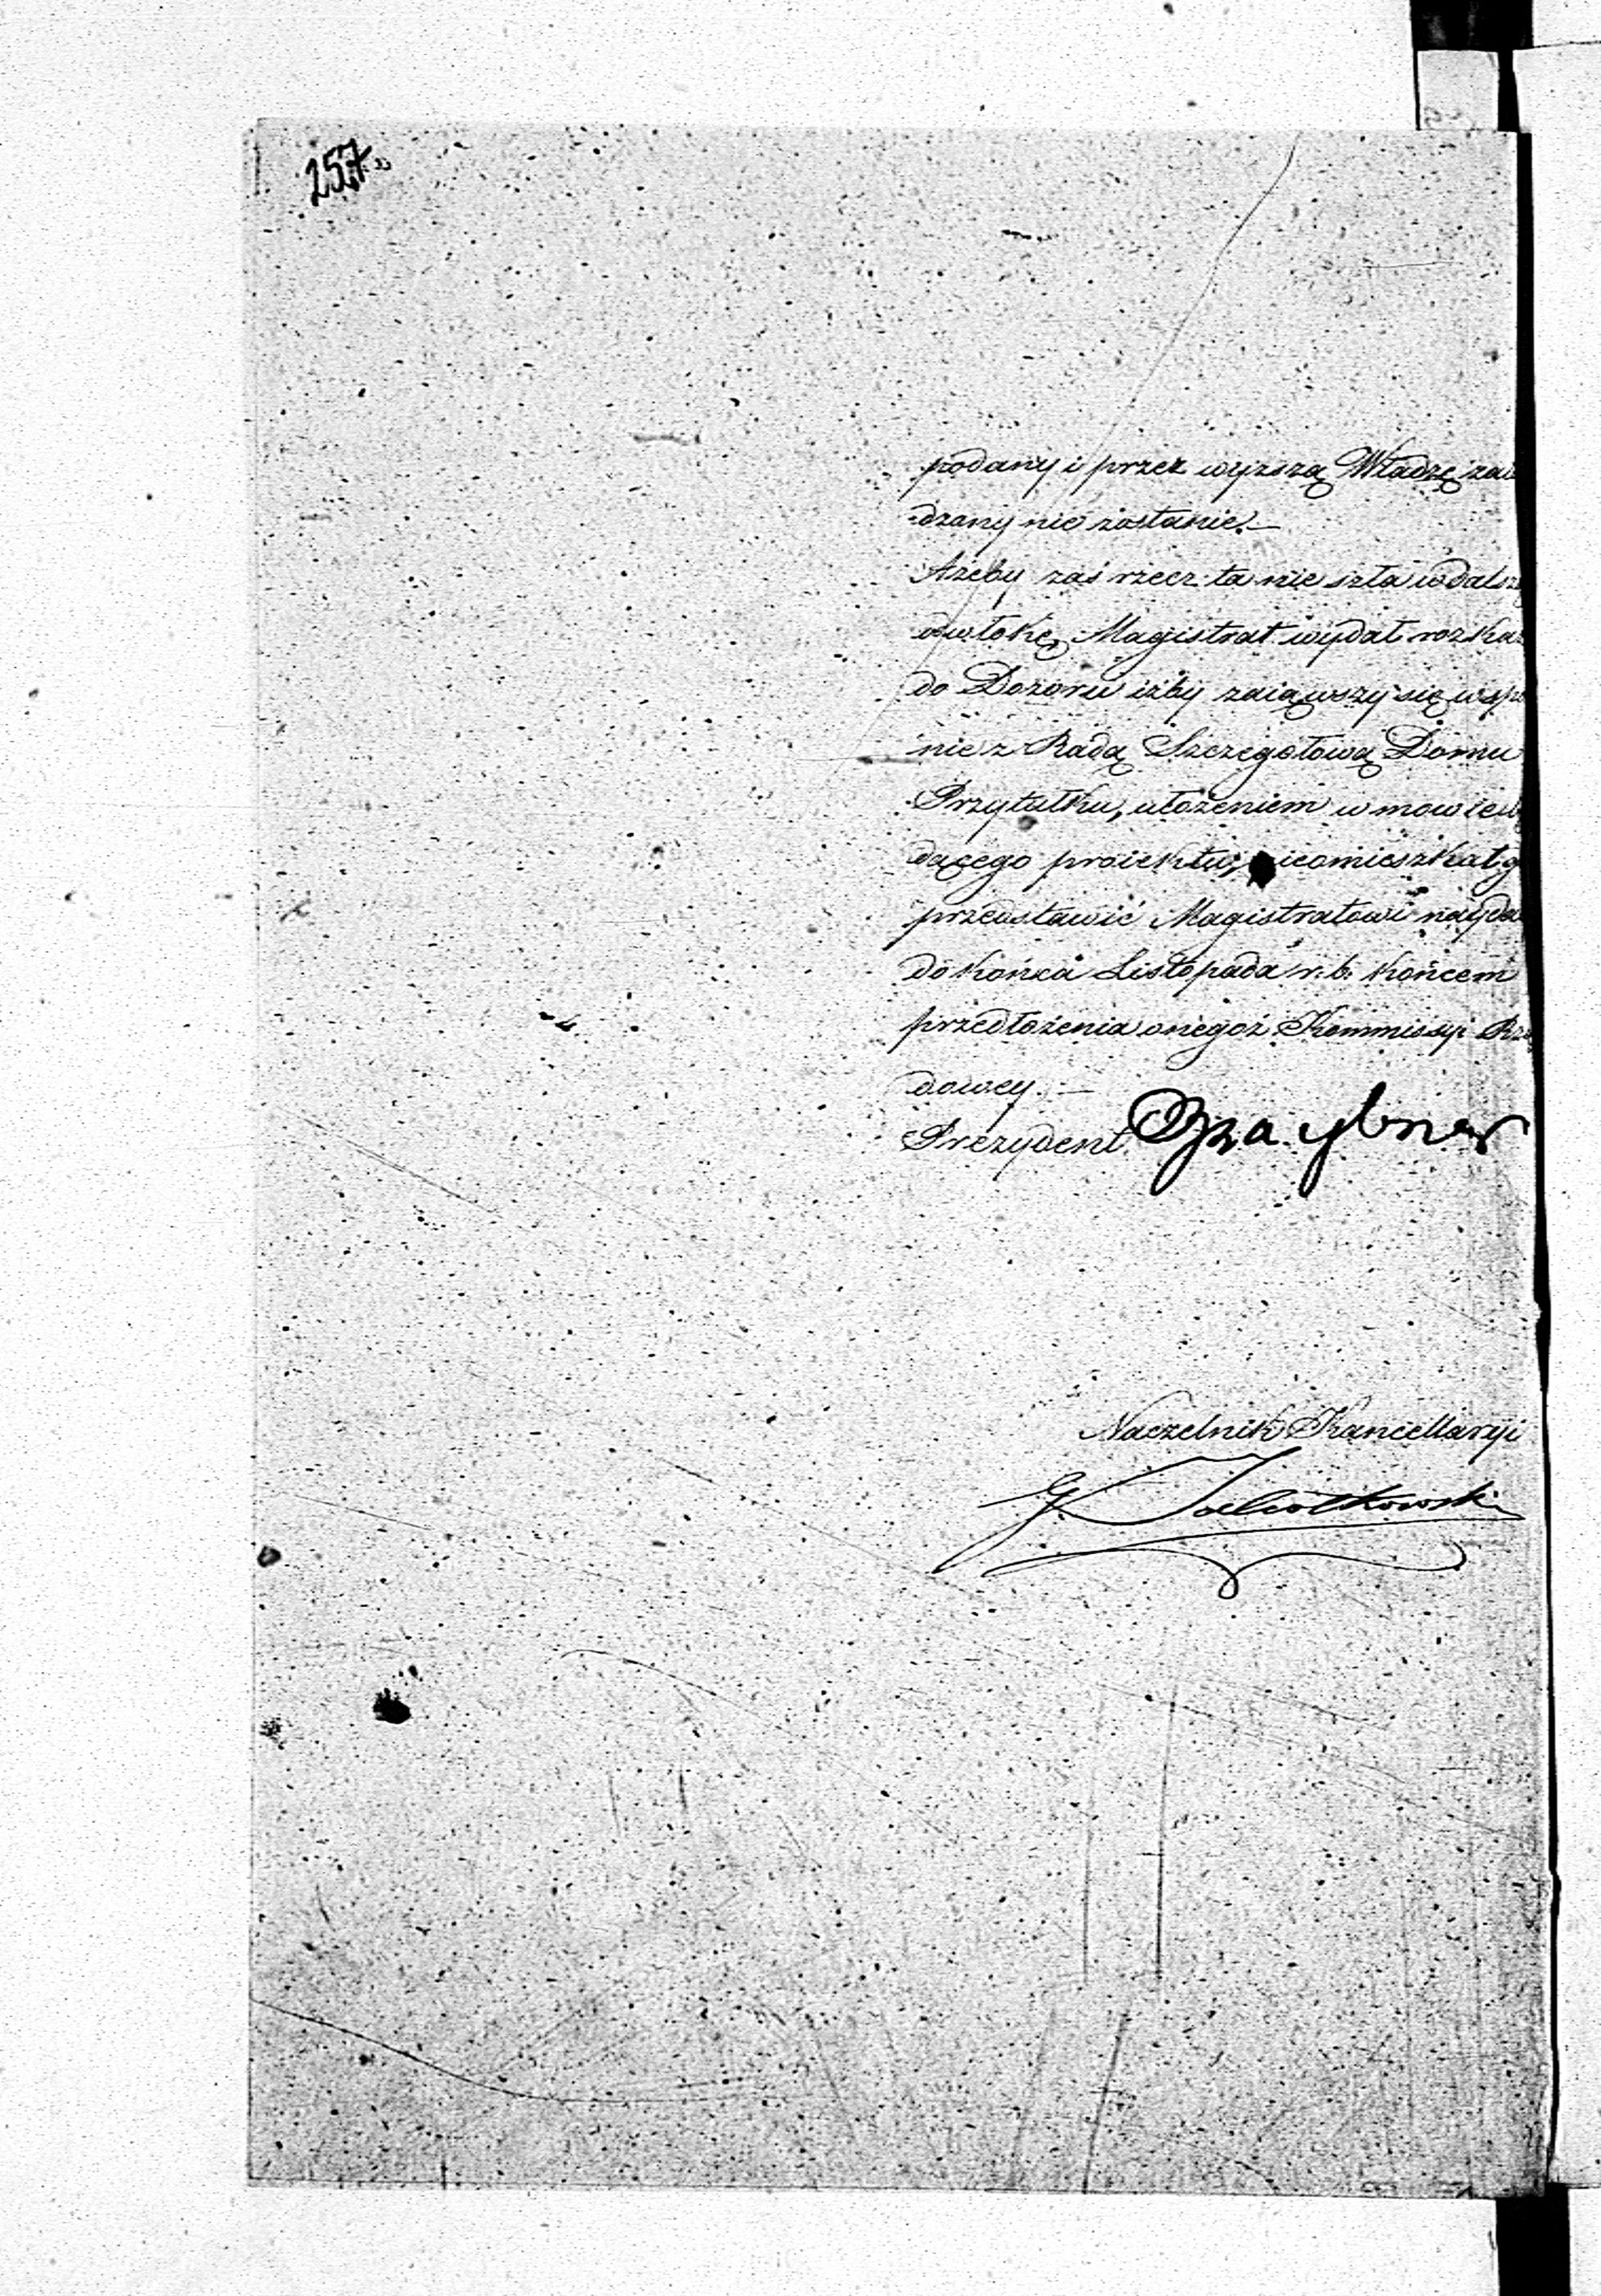 257
podany i przez wyższą Władzę zaw
dzany nie zostanie.—
Ażeby zaś rzecz ta nie szła w dalszą
odwłokę, Magistrat wydał rozkaz
do Dozoru iżby zaiąwszy się wspó
nie z Radą Szczegółową Domu
Przytułku, ułożeniem w mowie
dącego proiektu, nieomieszkał
przedstawić Magistratowi
do końca Listopada r. b. końcem
przedłożenia onegoż Kommissyi Rzą
dowey.—
Prezydent
Naczelnik Kancellaryi